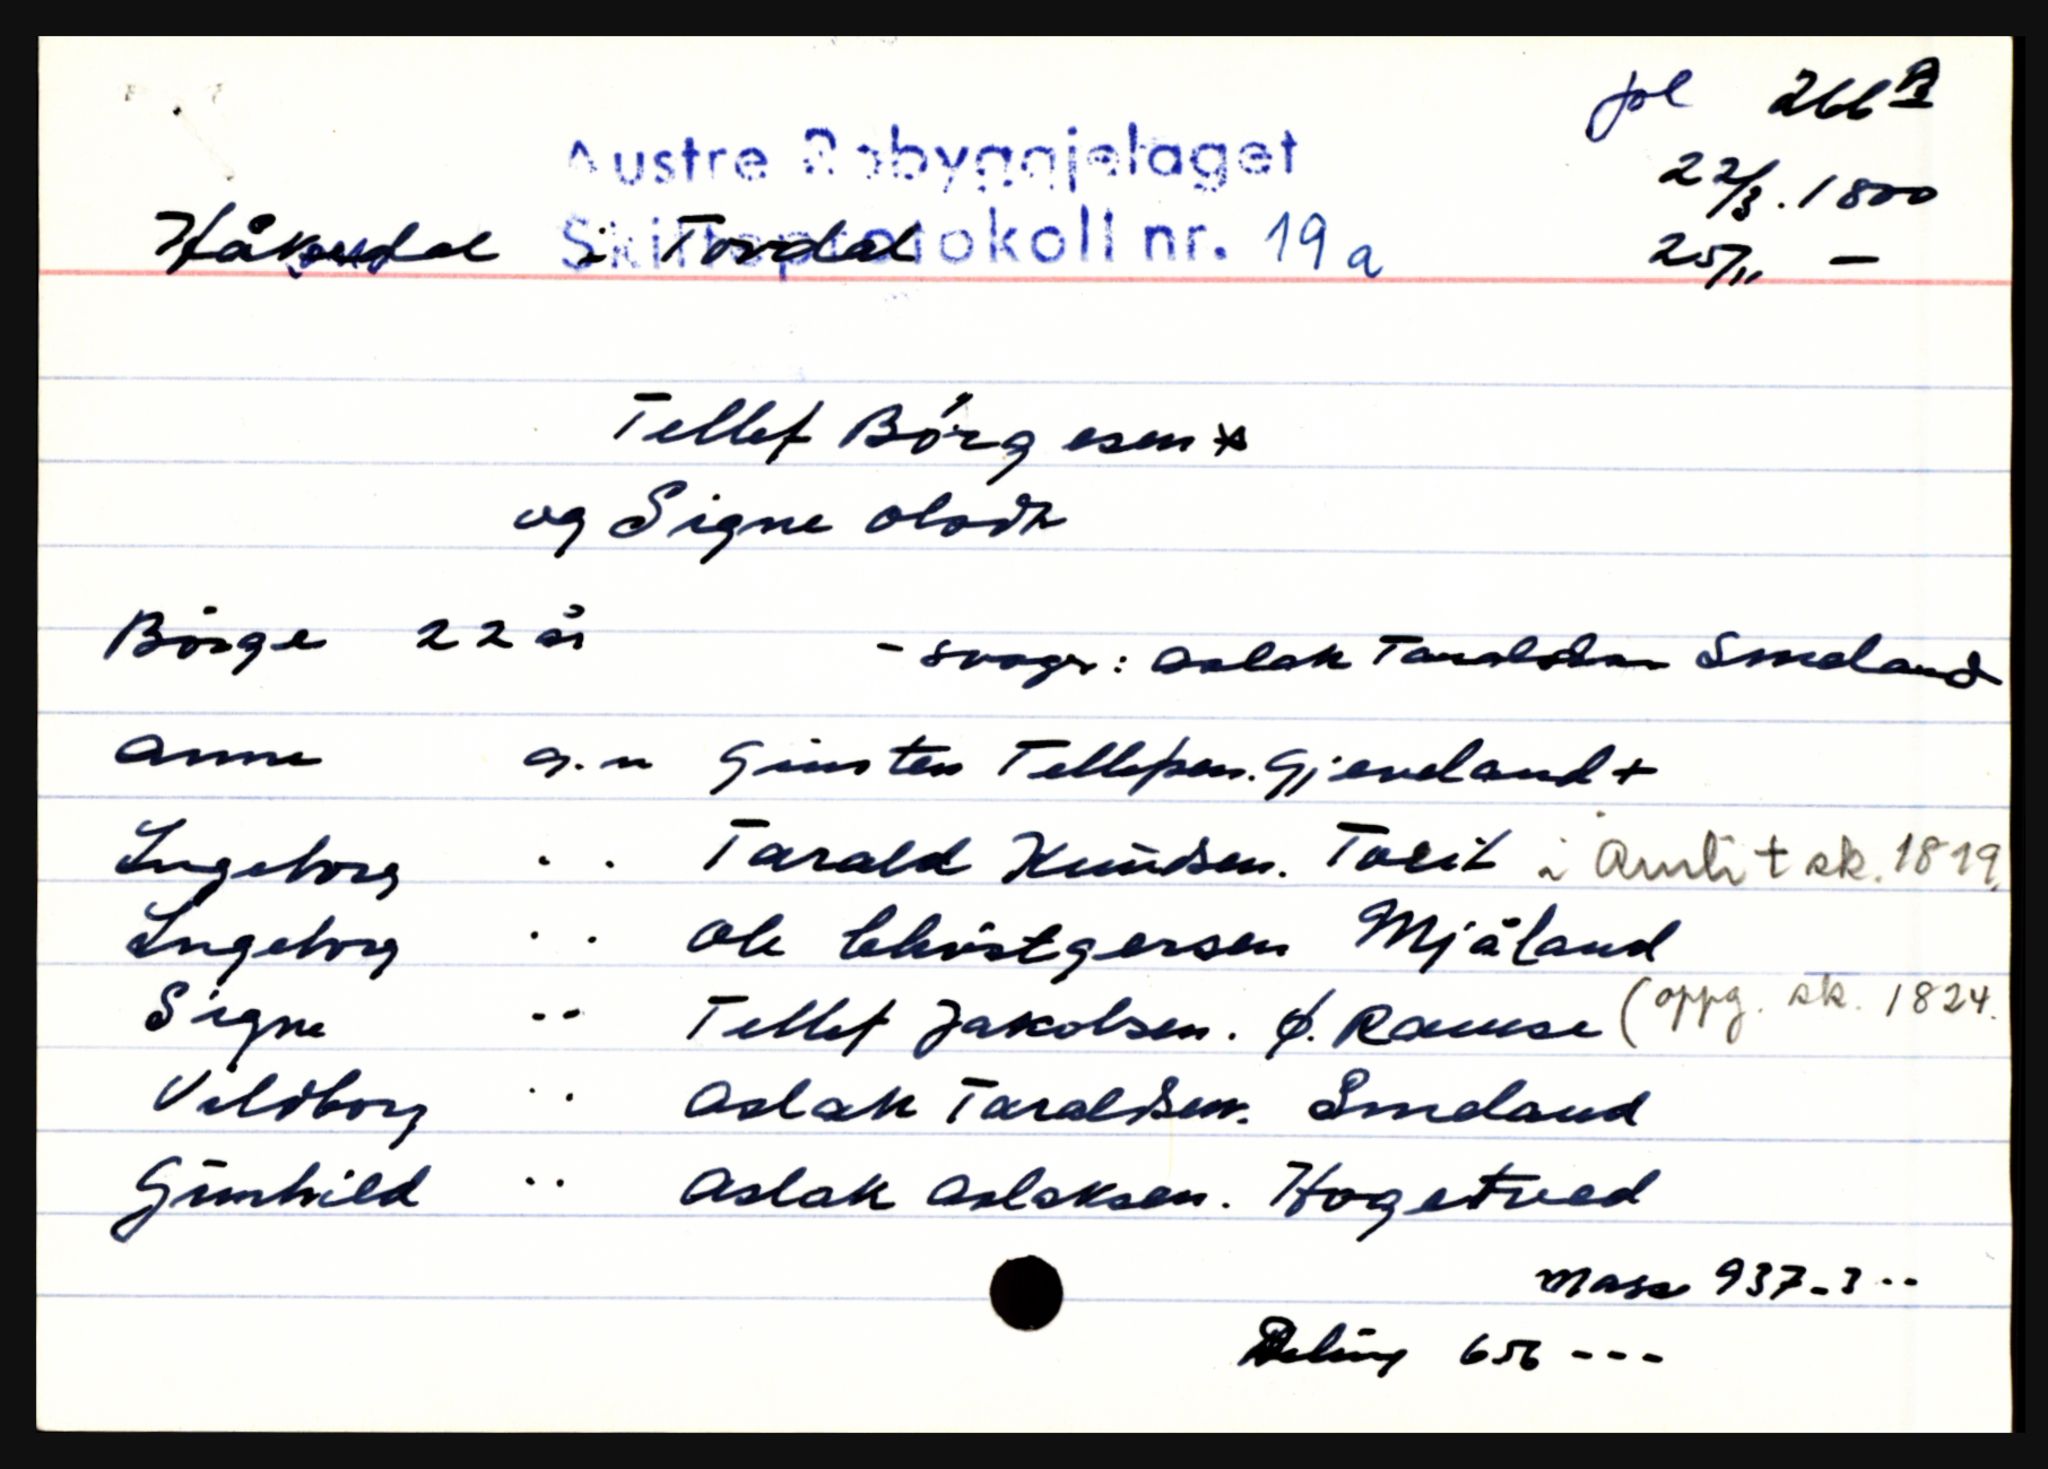 fol 266 B
Austre Robyggjelaget
22/3. 1800
Håkedal i Tovdal
Skifteprotokoll nr. 19 a
25/11 —
Tellef Börgesen *
og Signe olsdtr
Börge 22 år - svoger: Aslak Taraldsen Smeland
Anne g. m Giursten Tellefsen. Gjeveland +
Ingeborg . . Tarald Knudsen. Tveit i Åmli + sk. 1819.
Ingeborg . . Ole Christgersen Mjåland
Signe - - Tellef Jakobsen. Ø. Ramse (oppg. sk. 1824.
Valdborg . . Aslak Taraldsen. Smeland
Günhild . . Aslak Aslaksen. Hogetveed
Masse 937 - 3 - -
Deling 656 - - -